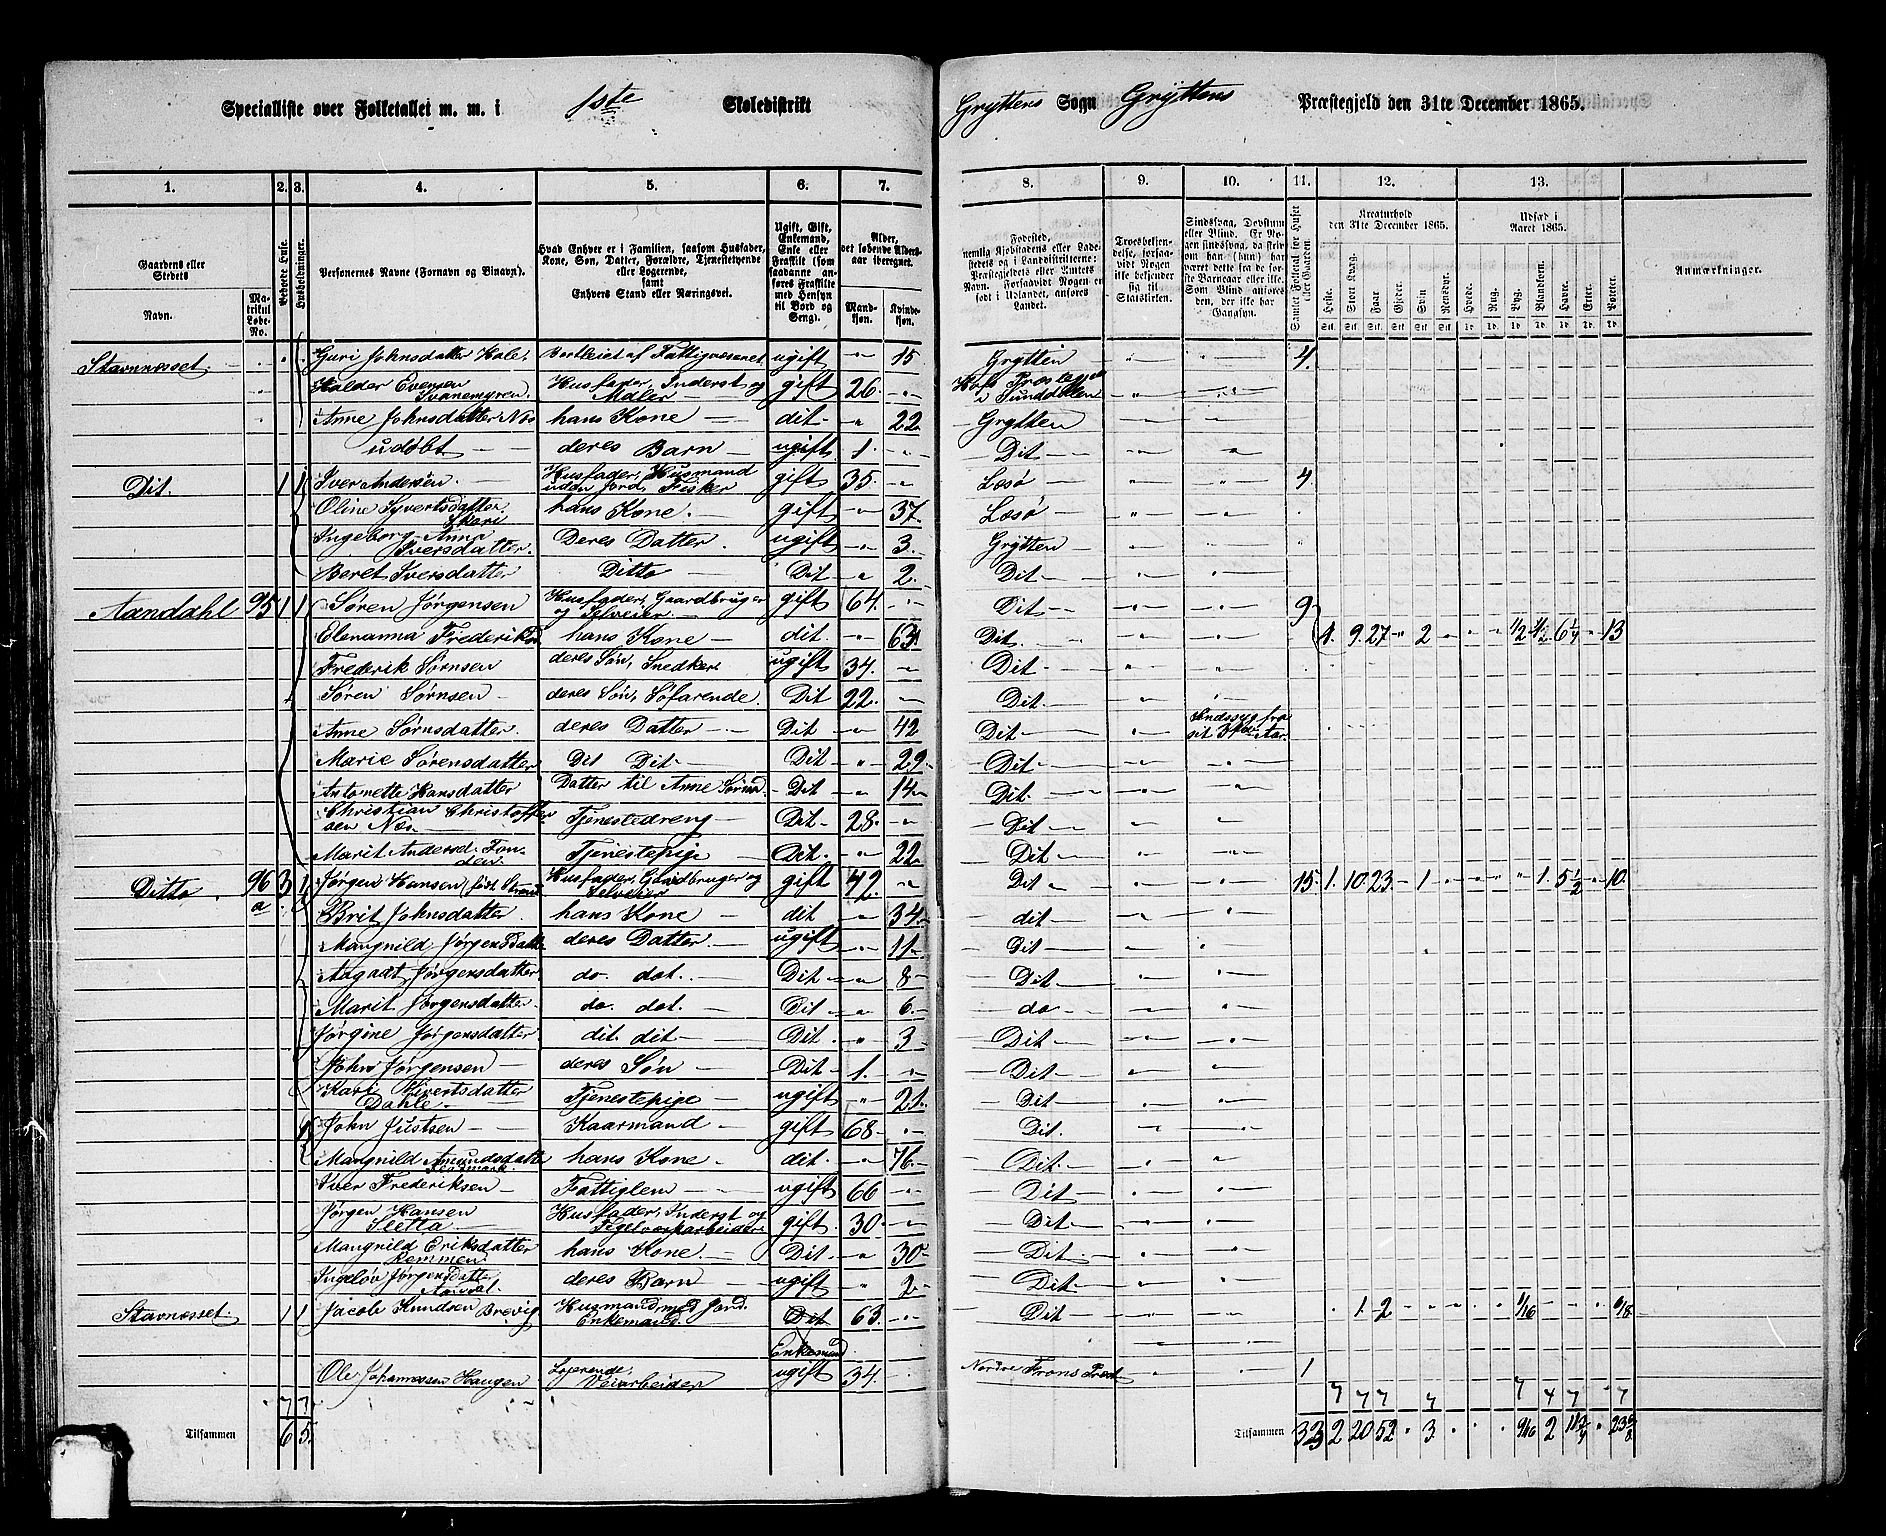 Specialliste over Folketallet m. m. i 1ste Skoledistrikt Gryttens Sogn Gryttens Præstegjeld den 31te December 1865.
1. 2. 3. 4. 5. 6. 7. 8. 9. 10. 11. 12. 13.
Gaardens eller Stedets
Navn.
Matrikul Løbe-No.
Bebøede Huse.
Husholdninger.
Personernes Navne (Fornavn og Binavn).
Hvad Enhver er i Familien, saasom Husfader, Kone, Søn, Datter, Forældre, Tjenestetyende eller Logerende, samt Enhvers Stand eller Næringsvei.
Ugift, Gift, Enkemand, Enke eller Fraskilt (som saadanne anføres Fraskilte med Hensyn til Bord og Seng).
Alder, det løbende Aldersaar iberegnet.
Mandkjøn. Kvindekjøn.
Fødested, nemlig Kjøbstadens eller Ladestedets og i Landdistrikterne: Præstegjeldets eller Amtets Navn. Forsaavidt Nogen er født i Udlandet, anføres Landet.
Troesbekjendelse, forsaavidt Nogen ikke bekjender sig til Statskirken.
Sindssvag, Døvstum eller Blind.
Samlet Folketal for Huset eller Gaarden.
Kreaturhold den 31te December 1865.
Heste. Stort Kvæg. Faar. Gjeder. Svin. Rensdyr.
Udsæd i Aaret 1865.
Hvede. Rug. Byg. Blandkorn. Havre. Erter. Poteter.
Anmærkninger.
Stavnæsset. Guri Johnsdatter Hole. Bortleiet af Fattigvæsenet ugift 15 Grytten 4.
Halder Evensen Svanemyren. Husfader, Inderst og Maler gift 26. i Sunddalen
Anne Johnsdatter Næs hans Kone dit 22 Grytten
udøbt deres Barn ugift 1. Dit
Dit. 1 1 Iver Andersen Husfader, Husmand uden Jord, Fisker gift 35. Læsø 4
Oline Syvertsdatter hans Kone. gift 37. Læsø
Ingeborg Anna Iversdatter. Deres Datter. ugift 3. Grytten
Beret Iversdatter Ditto Dit 2. Dit
Aandahl 95 1 1 Søren Jørgensen Husfader, Gaardbruger og Selveier gift 64. Dit 9
Elenanna hans Kone dit. 63. Dit. 1. 9. 27 2 1/2 1/2 6 1/4 13
Frederik Sørnsen deres Søn, Snedker ugift 34. Dit
Søren Sørnsen deres Søn, Søfarende. Dit 22. Dit.
Anne Sørnsdatter. deres Datter Dit 42 Dit
Marie Sørensdatter Dit Dit Dit 29 Dit
Antonette Hansdatter Datter til Anne Sørnsd. Dit 14 Dit.
Christian Christoffersen Næs Tjenestedreng Dit 28. Dit
Marit Andersd. Tjenestepige Dit. 22 Dit
Ditto. 96 a 3 1 Jørgen Hansen Husfader, Gaardbruger og Selveier gift 42. Dit 15. 1. 10. 23. 1 1. 5 1/2 10.
Brit Johnsdatter. hans Kone dit 34. dit
Mangnild Jørgensdatter deres Datter ugift 11 Dit
Aagaat Jørgensdatter do. dot. Dit 8 Dit
Marit Jørgensdatter do. dot. Dit 6. do
Jørgine Jørgensdatter dit. dit Dit 3 Dit
John Jørgensen deres Søn Dit 1. Dit
Kari Sivertsdatter Dahle. Tjenestepige ugift 21. Dit
John Justsen Kaarmand gift 68 Dit.
Mangnild Amundsdatter hans Kone dit. 76. Dit.
Iver Frederiksen Fattiglem ugift 66 Dit
Jørgen Hansen Sletta Husfader, Inderst og gift 30. Dit
Mangnild Eriksdatter Remmen hans Kone. Dit 30 Dit
Jørgensdatter deres Barn ugift 2 Dit
Stavnæsset. 1 1 Jacob Knudsen Brevig Husmand med Jord. Enkemand. Dit Enkemand. 63. Dit 1. 2 1/16 6/8
Ole Johannessen Haugen Logerende Veiarbeider ugift 34. Nordre Frons 1
7 7 7 7 7 7 7 4 7 7
Tilsammen 6 5. Tilsammen 33 2 20 52 3. 9/16 2